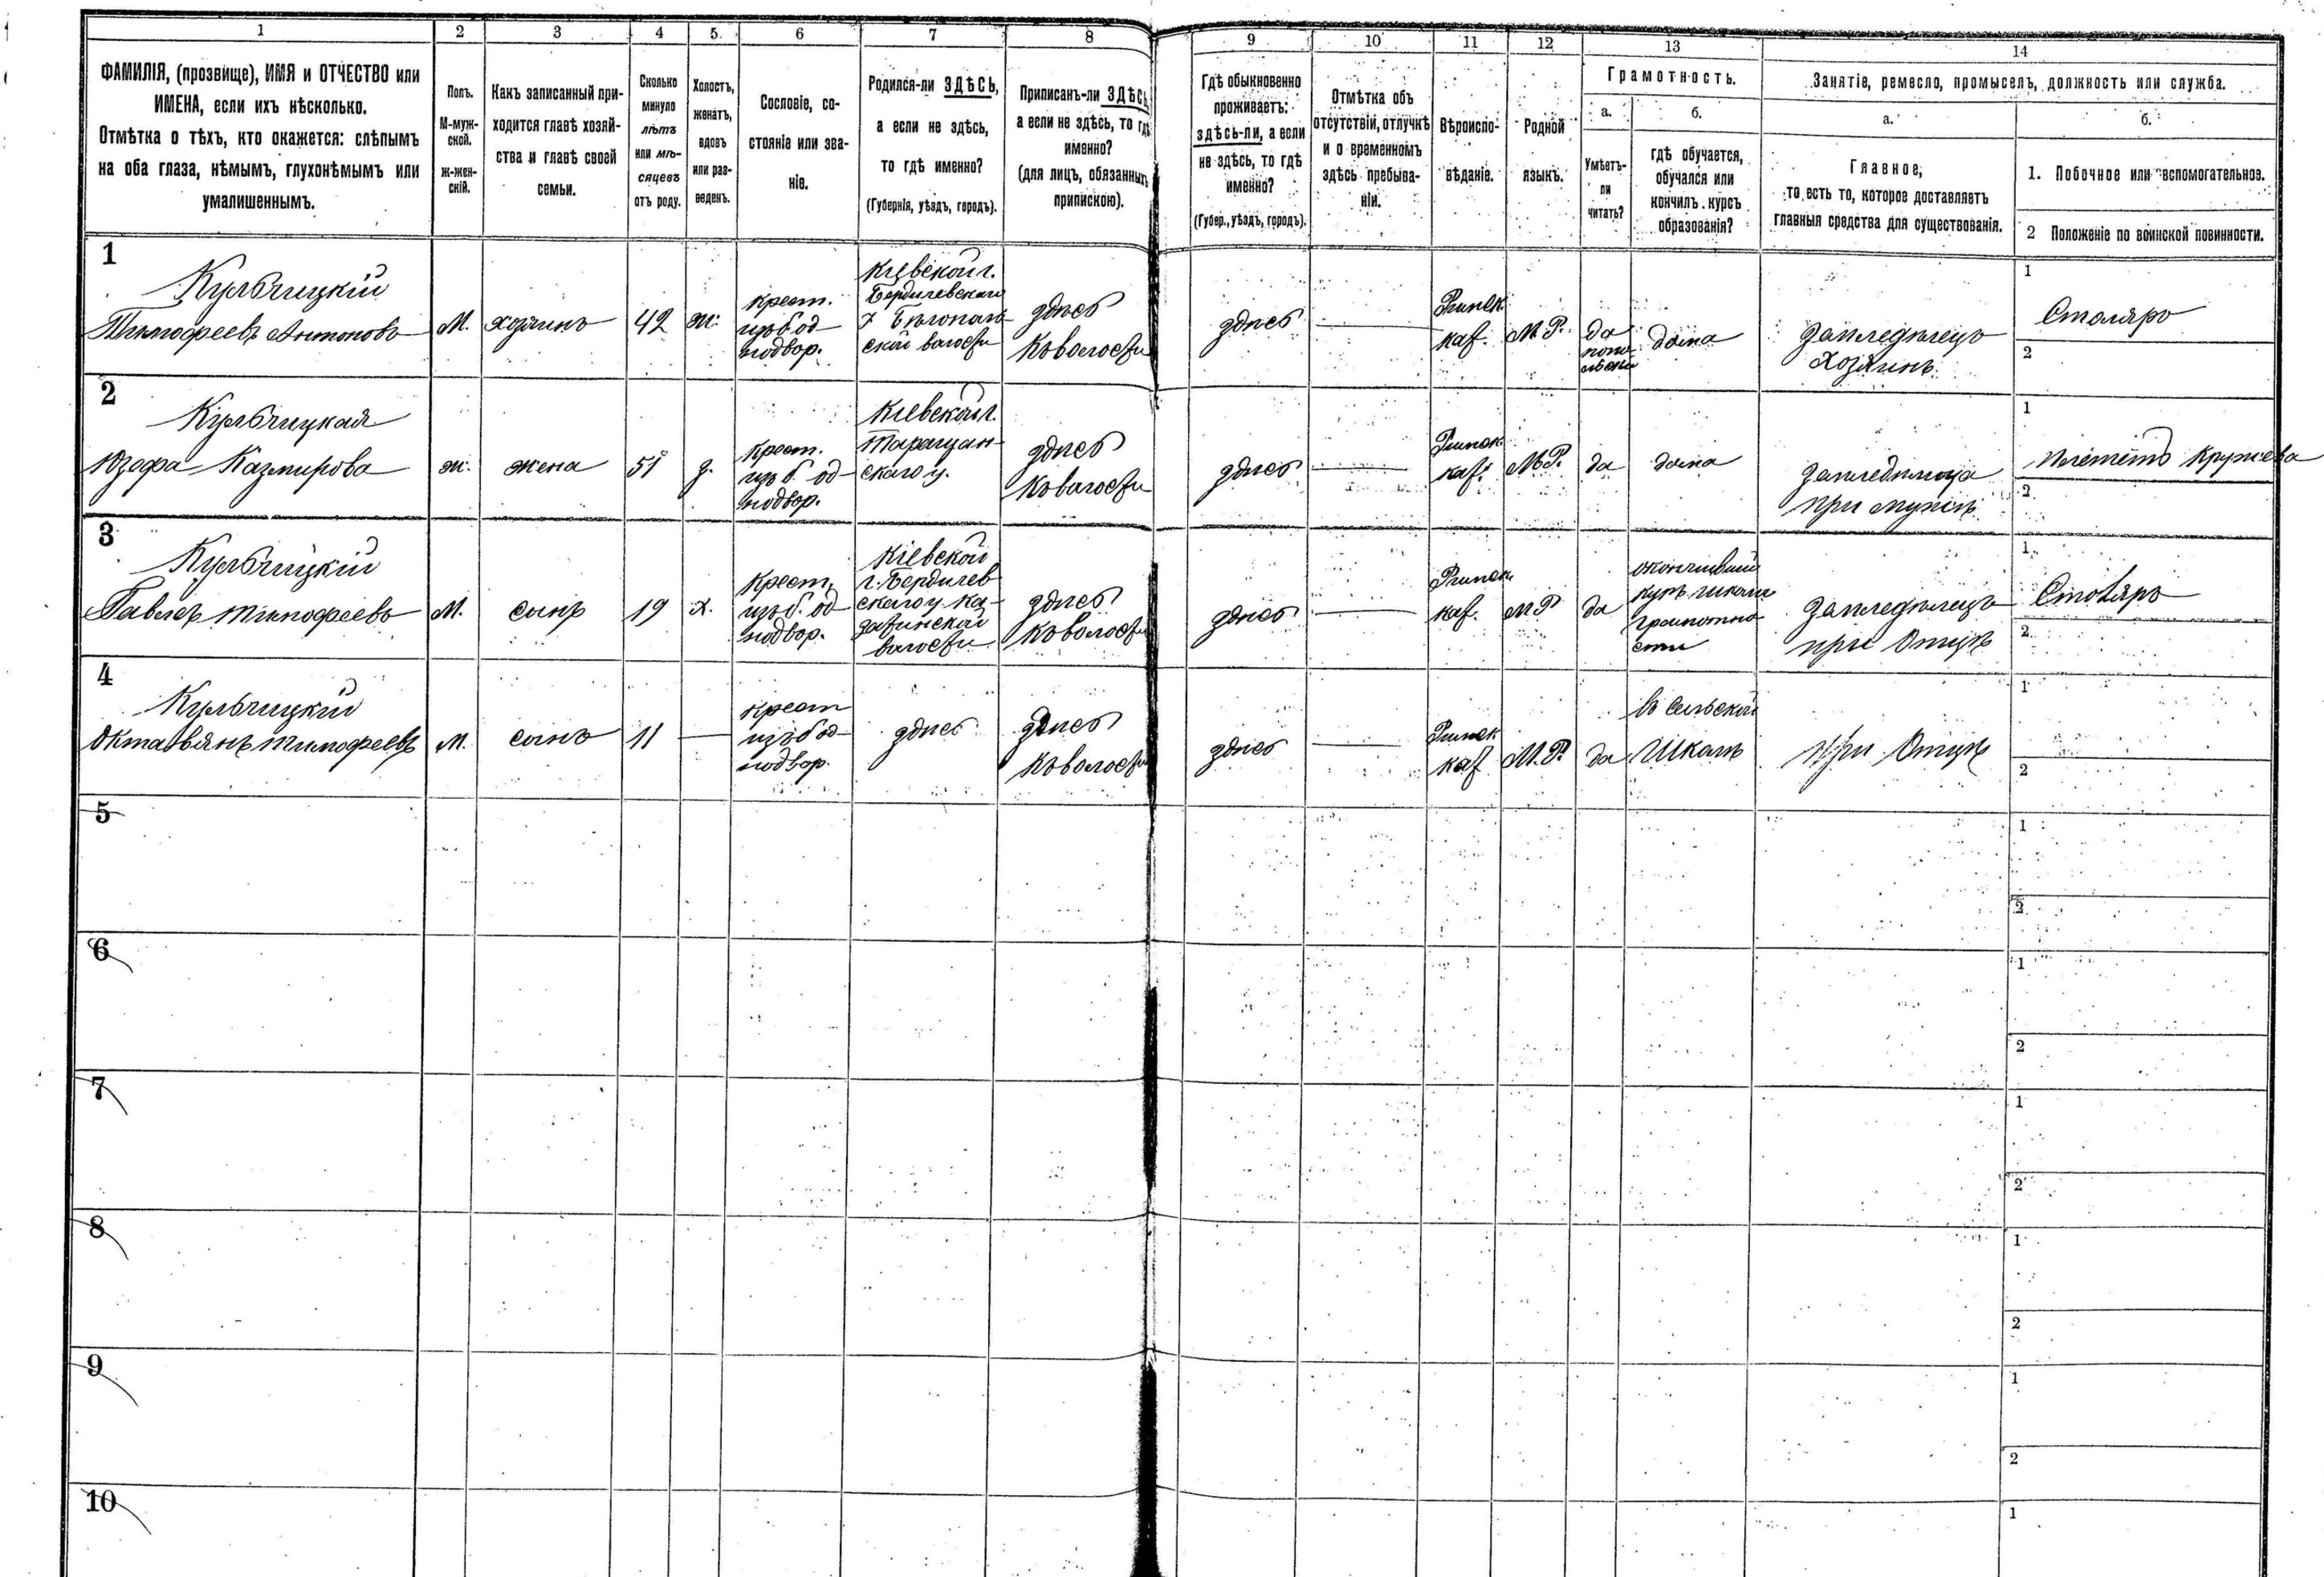 1 2 3 4 5. 6 7 8 9 10 11 12 13 14
ФАМИЛІЯ, (прозвище), ИМЯ и ОТЧЕСТВО или
ИМЕНА, если ихъ нѣсколько.
Отмѣтка о тѣхъ, кто окажется: слѣпымъ
на оба глаза, нѣмымъ, глухонѣмымъ или
умалишеннымъ.
Полъ.
М-муж-
ской.
ж-жен-
скій.
Какъ записанный при-
ходится главѣ хозяй-
ства и главѣ своей
семьи.
Сколько
минуло
лѣтъ
или мѣ-
сяцевъ
отъ роду.
Холостъ,
женатъ,
вдовъ
или раз-
веденъ.
Сословіе, со-
стояніе или зва-
ніе.
Родился-ли ЗДѢСЬ,
а если не здѣсь,
то гдѣ именно?
(Губернія, уѣздъ, городъ).
Приписанъ-ли ЗДѢСЬ,
а если не здѣсь, то гдѣ
именно?
(для лицъ, обязанныхъ
припискою).
Гдѣ обыкновенно
проживаетъ:
здѣсь-ли, а если
не здѣсь, то гдѣ
именно?
(Губер., уѣздъ, городъ).
Отмѣтка объ
отсутствіи, отлучкѣ
и о временномъ
здѣсь пребыва-
ніи.
Вѣроиспо-
вѣданіе.
Родной
языкъ.
Грамотность.
а.
Умѣетъ-
ли
читать?
б.
гдѣ обучается,
обучался или
кончилъ курсъ
образованія?
Занятіе, ремесло, промыселъ, должность или служба.
а.
Главное,
то есть то, которое доставляетъ
главныя средства для существованія.
б.
1. Побочное или вспомогательное.
2 Положеніе по воинской повинности.
1
Кульчицкій
Тимофеевъ Антоновъ
М.
хозяинъ
42
ж.
крест.
изъ б. од
нодвор.
Кіевской г.
Бердичевскаго
ской волости
здѣсь
К волости
здѣсь
Римск.
каѳ.
М. Р.
да
дома
Земледѣлецъ
Хозяинъ
1
Столяръ
2
2
Кульчицкая
Юзефа Казмирова
ж.
жена
51
з.
крест.
изъ б. од
нодвор.
Кіевской г.
Таращан-
скаго у.
здѣсь
К волости
здѣсь
Римск.
каѳ.
М. Р.
да
дома
земледѣлица
при мужѣ
1
плететъ кружева
2
3
Кульчицкій
Павлеъ Тимофеевъ
М.
сынъ
19
х.
Крест.
изъ б. од
нодвор.
Кіевской
г. Бердичев
скаго у. Ка-
волости
здѣсь
К волости
здѣсь
Римск.
каѳ.
М Р
да
школы
грамотно
сти
земледѣлецъ
при Отцѣ
1
Столяръ
2
4
Кульчицкій
Октавьянъ Тимофеевъ
М.
сынъ
11
крест
изъ б од
нодвор.
здѣсь
здѣсь
К волости
здѣсь
Римск
каѳ
М. Р.
да
въ Сельской
Школѣ
при Отцѣ
1
2
5
1
2
6
1
2
7
1
2
8
1
2
9
1
2
10
1